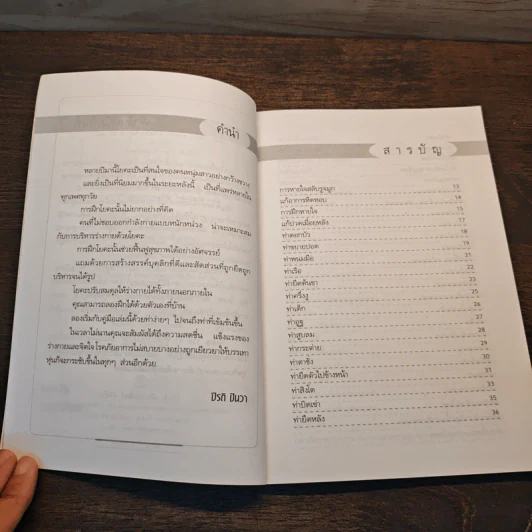 คำนำ
หลายปีมานี้โยคะเป็นที่สนใจของคนหนุ่มสาวอย่างกว้างขวาง
และยิ่งเป็นที่นิยมมากขึ้นในระยะหลังนี้ เป็นที่แพร่หลายใน
ทุกเพศทุกวัย
การฝึกโยคะนั้นไม่ยากอย่างที่คิด
คนที่ไม่ชอบออกกำลังกายแบบหนักหน่วง น่าจะเหมาะสม
กับการบริหารร่างกายด้วยโยคะ
การฝึกโยคะนั้นช่วยฟื้นฟูสุขภาพได้อย่างอัศจรรย์
แถมด้วยการสร้างสรรค์บุคลิกที่ดีและสัดส่วนที่ถูกยืดถูก
บริหารจนได้รูป
โยคะปรับสมดุลให้ร่างกายได้ทั้งภายนอกภายใน
คุณสามารถลองฝึกได้ด้วยตัวเองที่บ้าน
ลองเริ่มกับคู่มือเล่มนี้ด้วยท่าง่ายๆ ไปจนถึงท่าที่เข้มข้นขึ้น
ในเวลาไม่นานคุณจะสัมผัสได้ถึงความสดชื่น แข็งแรงของ
ร่างกายและจิตใจ โรคภัยอาการไม่สบายบางอย่างถูกเยียวยาให้บรรเทา
หุ่นก็จะกระชับขึ้นในทุกๆ ส่วนอีกด้วย
ปิรติ ปันวา
สารบัญ
การหายใจสลับรูจมูก 13
แก้อาการหืดหอบ 14
การฝึกหายใจ 15
แก้ปวดเมื่อยหลัง 17
ท่าดอกบัว
ท่าขยายปอด
ท่าพนมมือ
ท่าเรือ 22
ท่ายืดต้นขา 23
ท่าครึ่งงู 25
ท่าเด็ก 26
ท่างู 27
ท่าสูบลม 28
ท่ากระต่าย 29
ท่าตาชั่ง 30
ท่ายืดตัวไปข้างหน้า 31
ท่าสิงโต 33
ท่าบิดเข่า 35
ท่ายืดหลัง 36